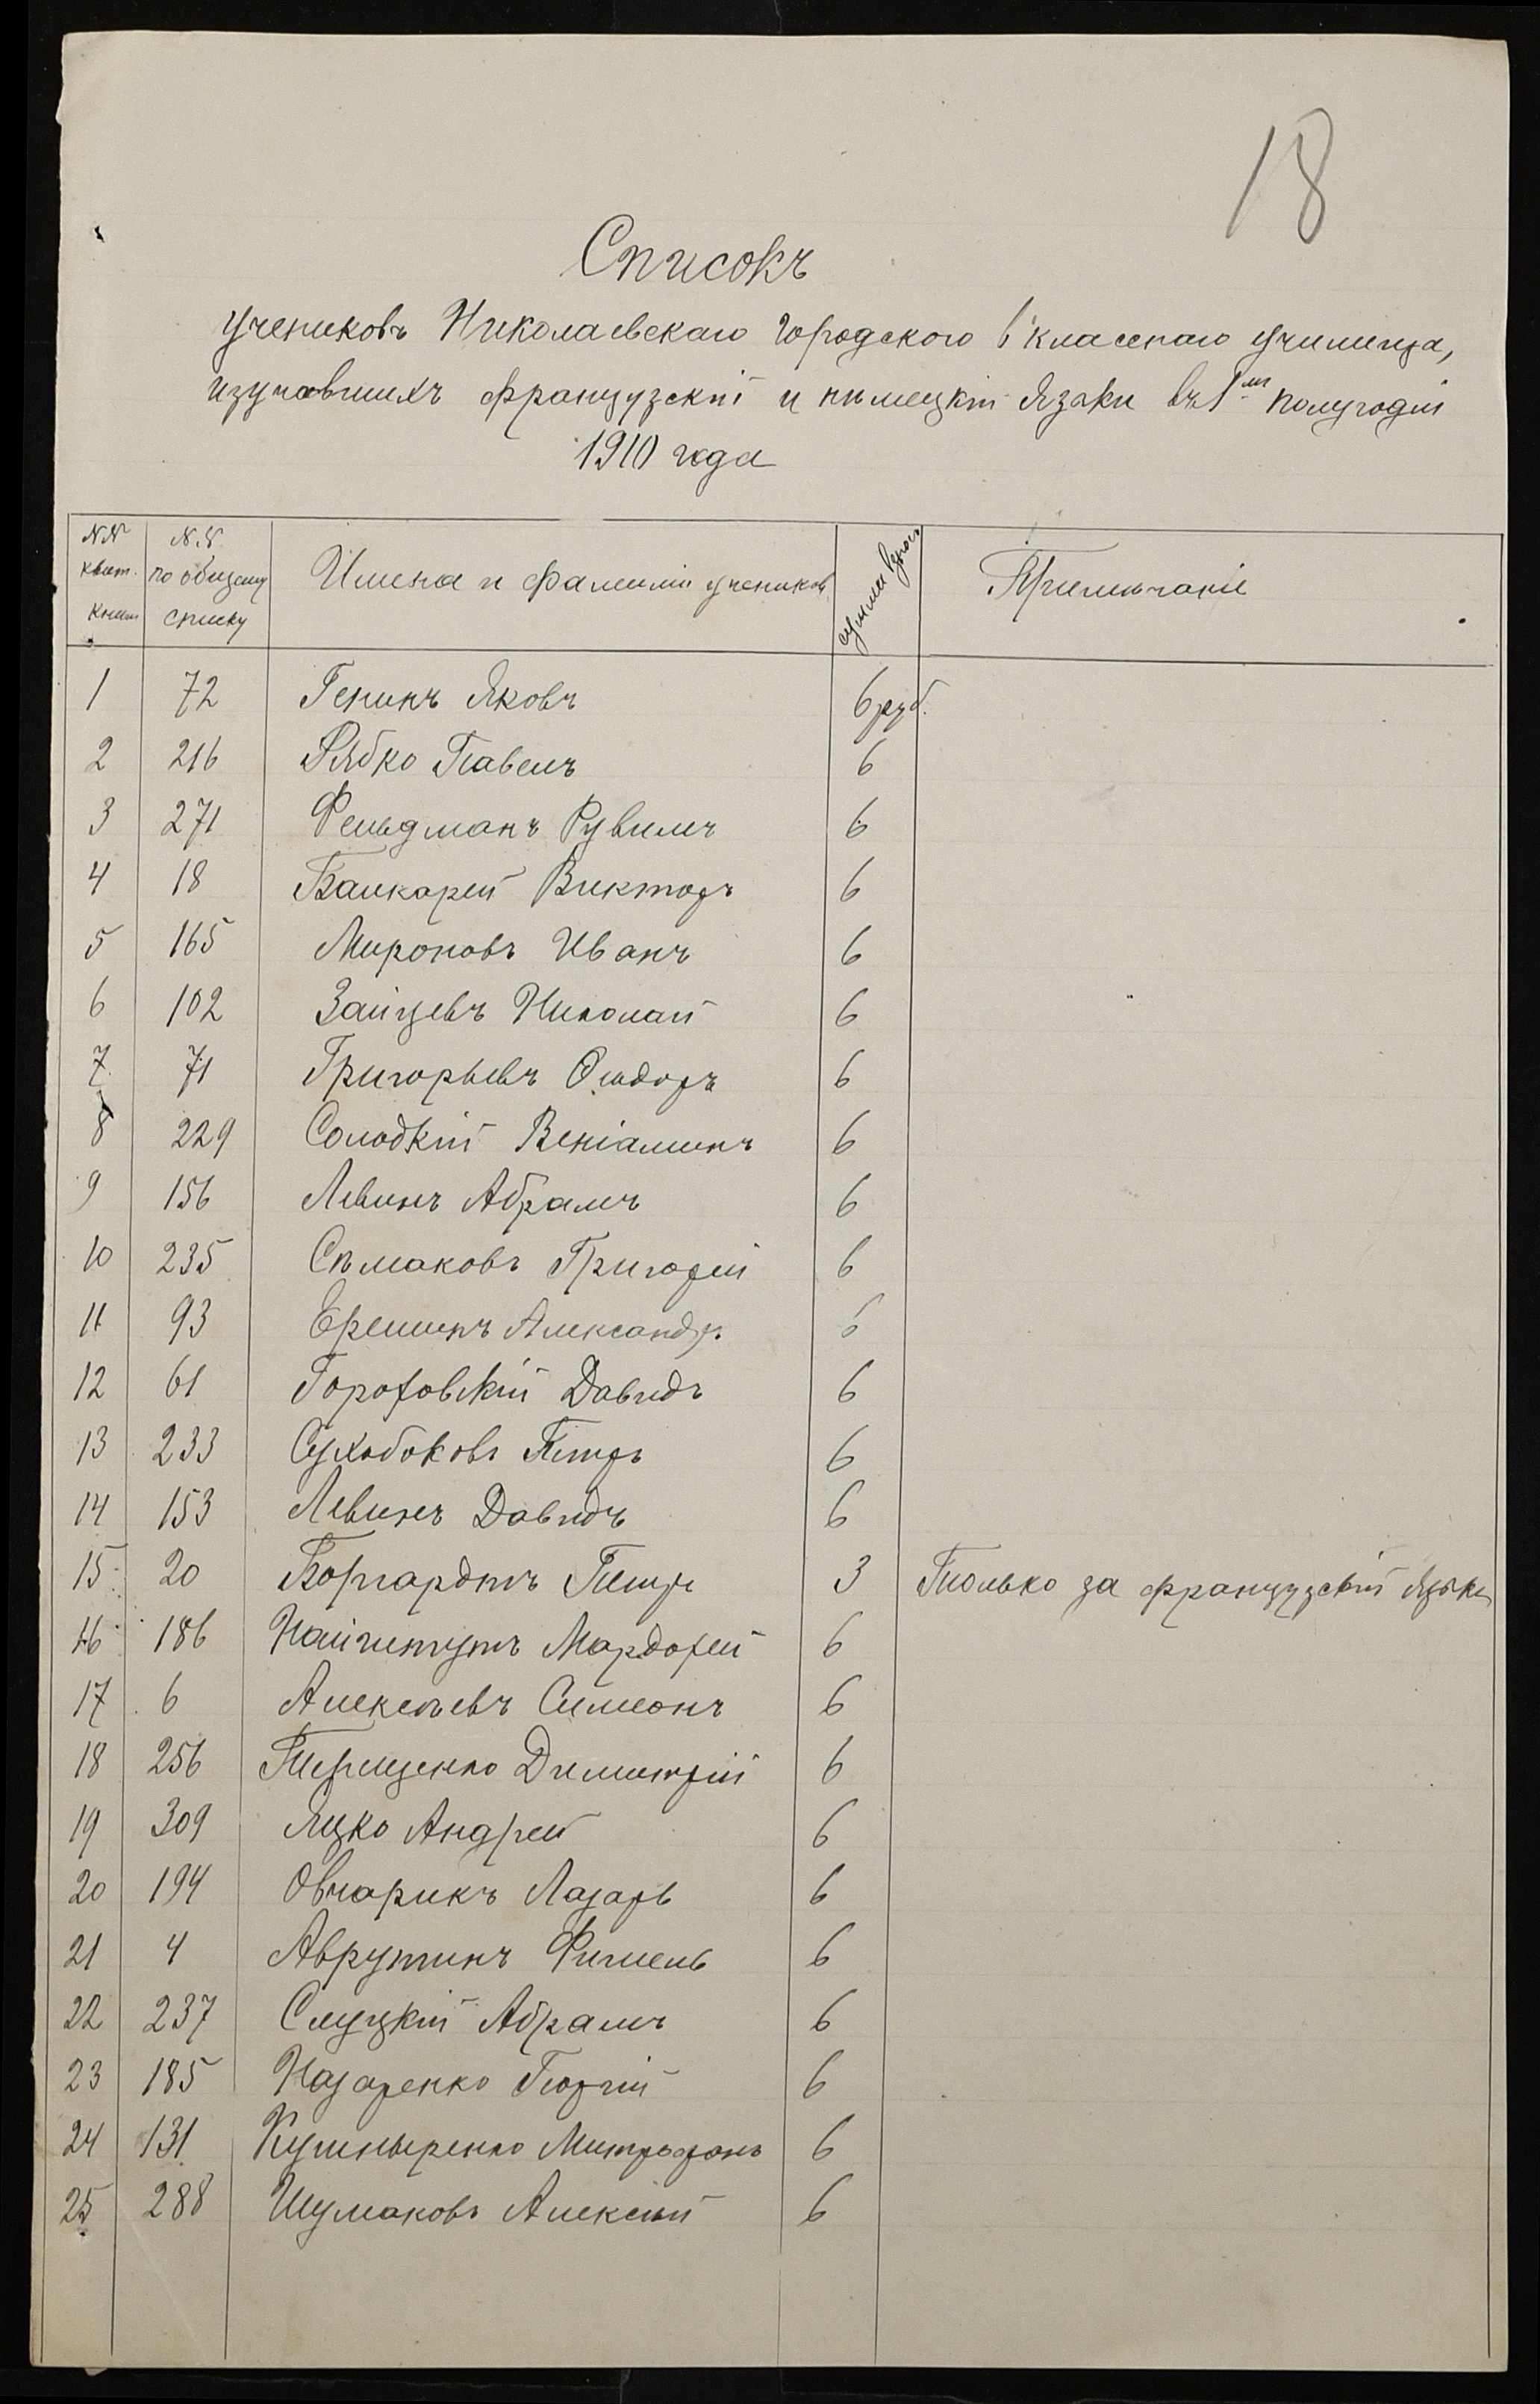 18
Списокъ
учениковъ Николаевскаго Городского 6 класснаго училища,
изучавшихъ французскій и нѣмецкій языки въ 1ᵐъ полугодіи
1910 года
NN квит. книги | N.N. по общему списку | Имена и фамиліи учениковъ | сумма взноса | Примѣчаніе
1 72 Генинъ Яковъ 6 руб.
2 216 Рябко Павелъ 6
3 271 Фельдманъ Рувимъ 6
4 18 Банкарей Викторъ 6
5 165 Мироновъ Иванъ 6
6 102 Зайцевъ Николай 6
7 71 Григорьевъ Ѳеодоръ 6
8 229 Солодкій Веніаминъ 6
9 156 Левинъ Абрамъ 6
10 235 Сѣмаковъ Григорій 6
11 93 Ереминъ Александръ 6
12 61 Гороховскій Давидъ 6
13 233 Сухобоковъ Петръ 6
14 153 Левинъ Давидъ 6
15 20 Боргардтъ Петръ 3 Только за французскій языкъ
16 186 Мардохей 6
17 6 Алексѣевъ Симеонъ 6
18 256 Терещенко Димитрій 6
19 309 Яцко Андрей 6
20 194 Овчарикъ Лазарь 6
21 4 Аврутинъ Фишель 6
22 237 Слуцкій Абрамъ 6
23 185 Назаренко Георгій 6
24 131 Кушныренко Митрофанъ 6
25 288 Шумаковъ Алексѣй 6